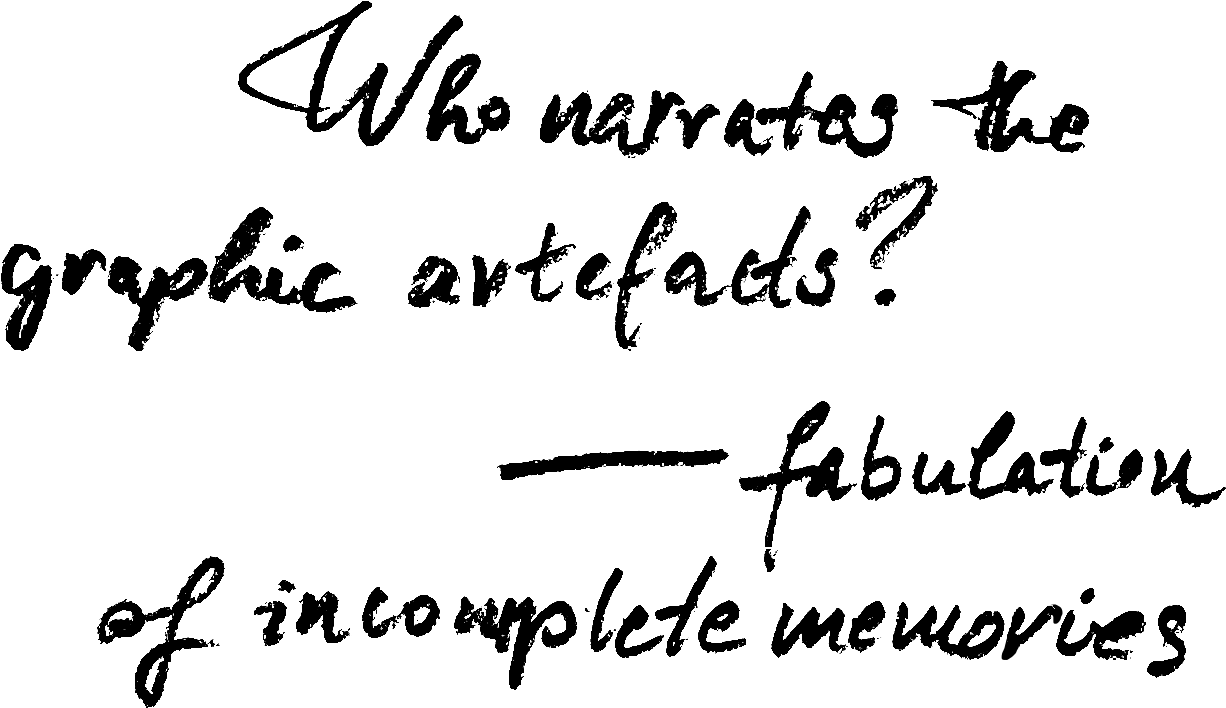 Who narrates the
graphic artefacts?
— fabulation
of incomplete memories